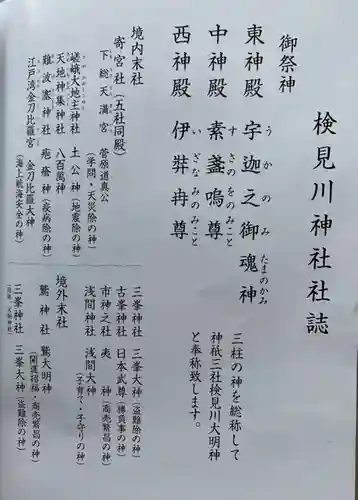 検見川神社社誌
御祭神
東神殿　宇迦之御魂神
うかのみたまのかみ
中神殿　素盞嗚尊
すさのをのみこと
西神殿　伊弉冉尊
いざなみのみこと
三柱の神を総称して
神祇三社検見川大明神
と奉称致します。
境内末社
寄宮社（五社同殿）
下総天満宮　菅原道真公
（学問・天災除の神）
嵯峨大地主神社　土公神
（地震除の神）
天地神集神社　八百萬神
難波塞神社　疱瘡神
（疾病除の神）
江戸湾金刀比羅宮　金刀比羅大神
（海上航海安全の神）
三峯神社　三峯大神
（盗難除の神）
古峯神社　日本武尊
（勝負事の神）
市神之社　夷神
（商売繁昌の神）
浅間神社　浅間大神
（子育て・子守りの神）
境外末社
鷲神社　鷲大明神
（開運招福・商売繁昌の神）
三峯神社　三峯大神
（盗難除の神）